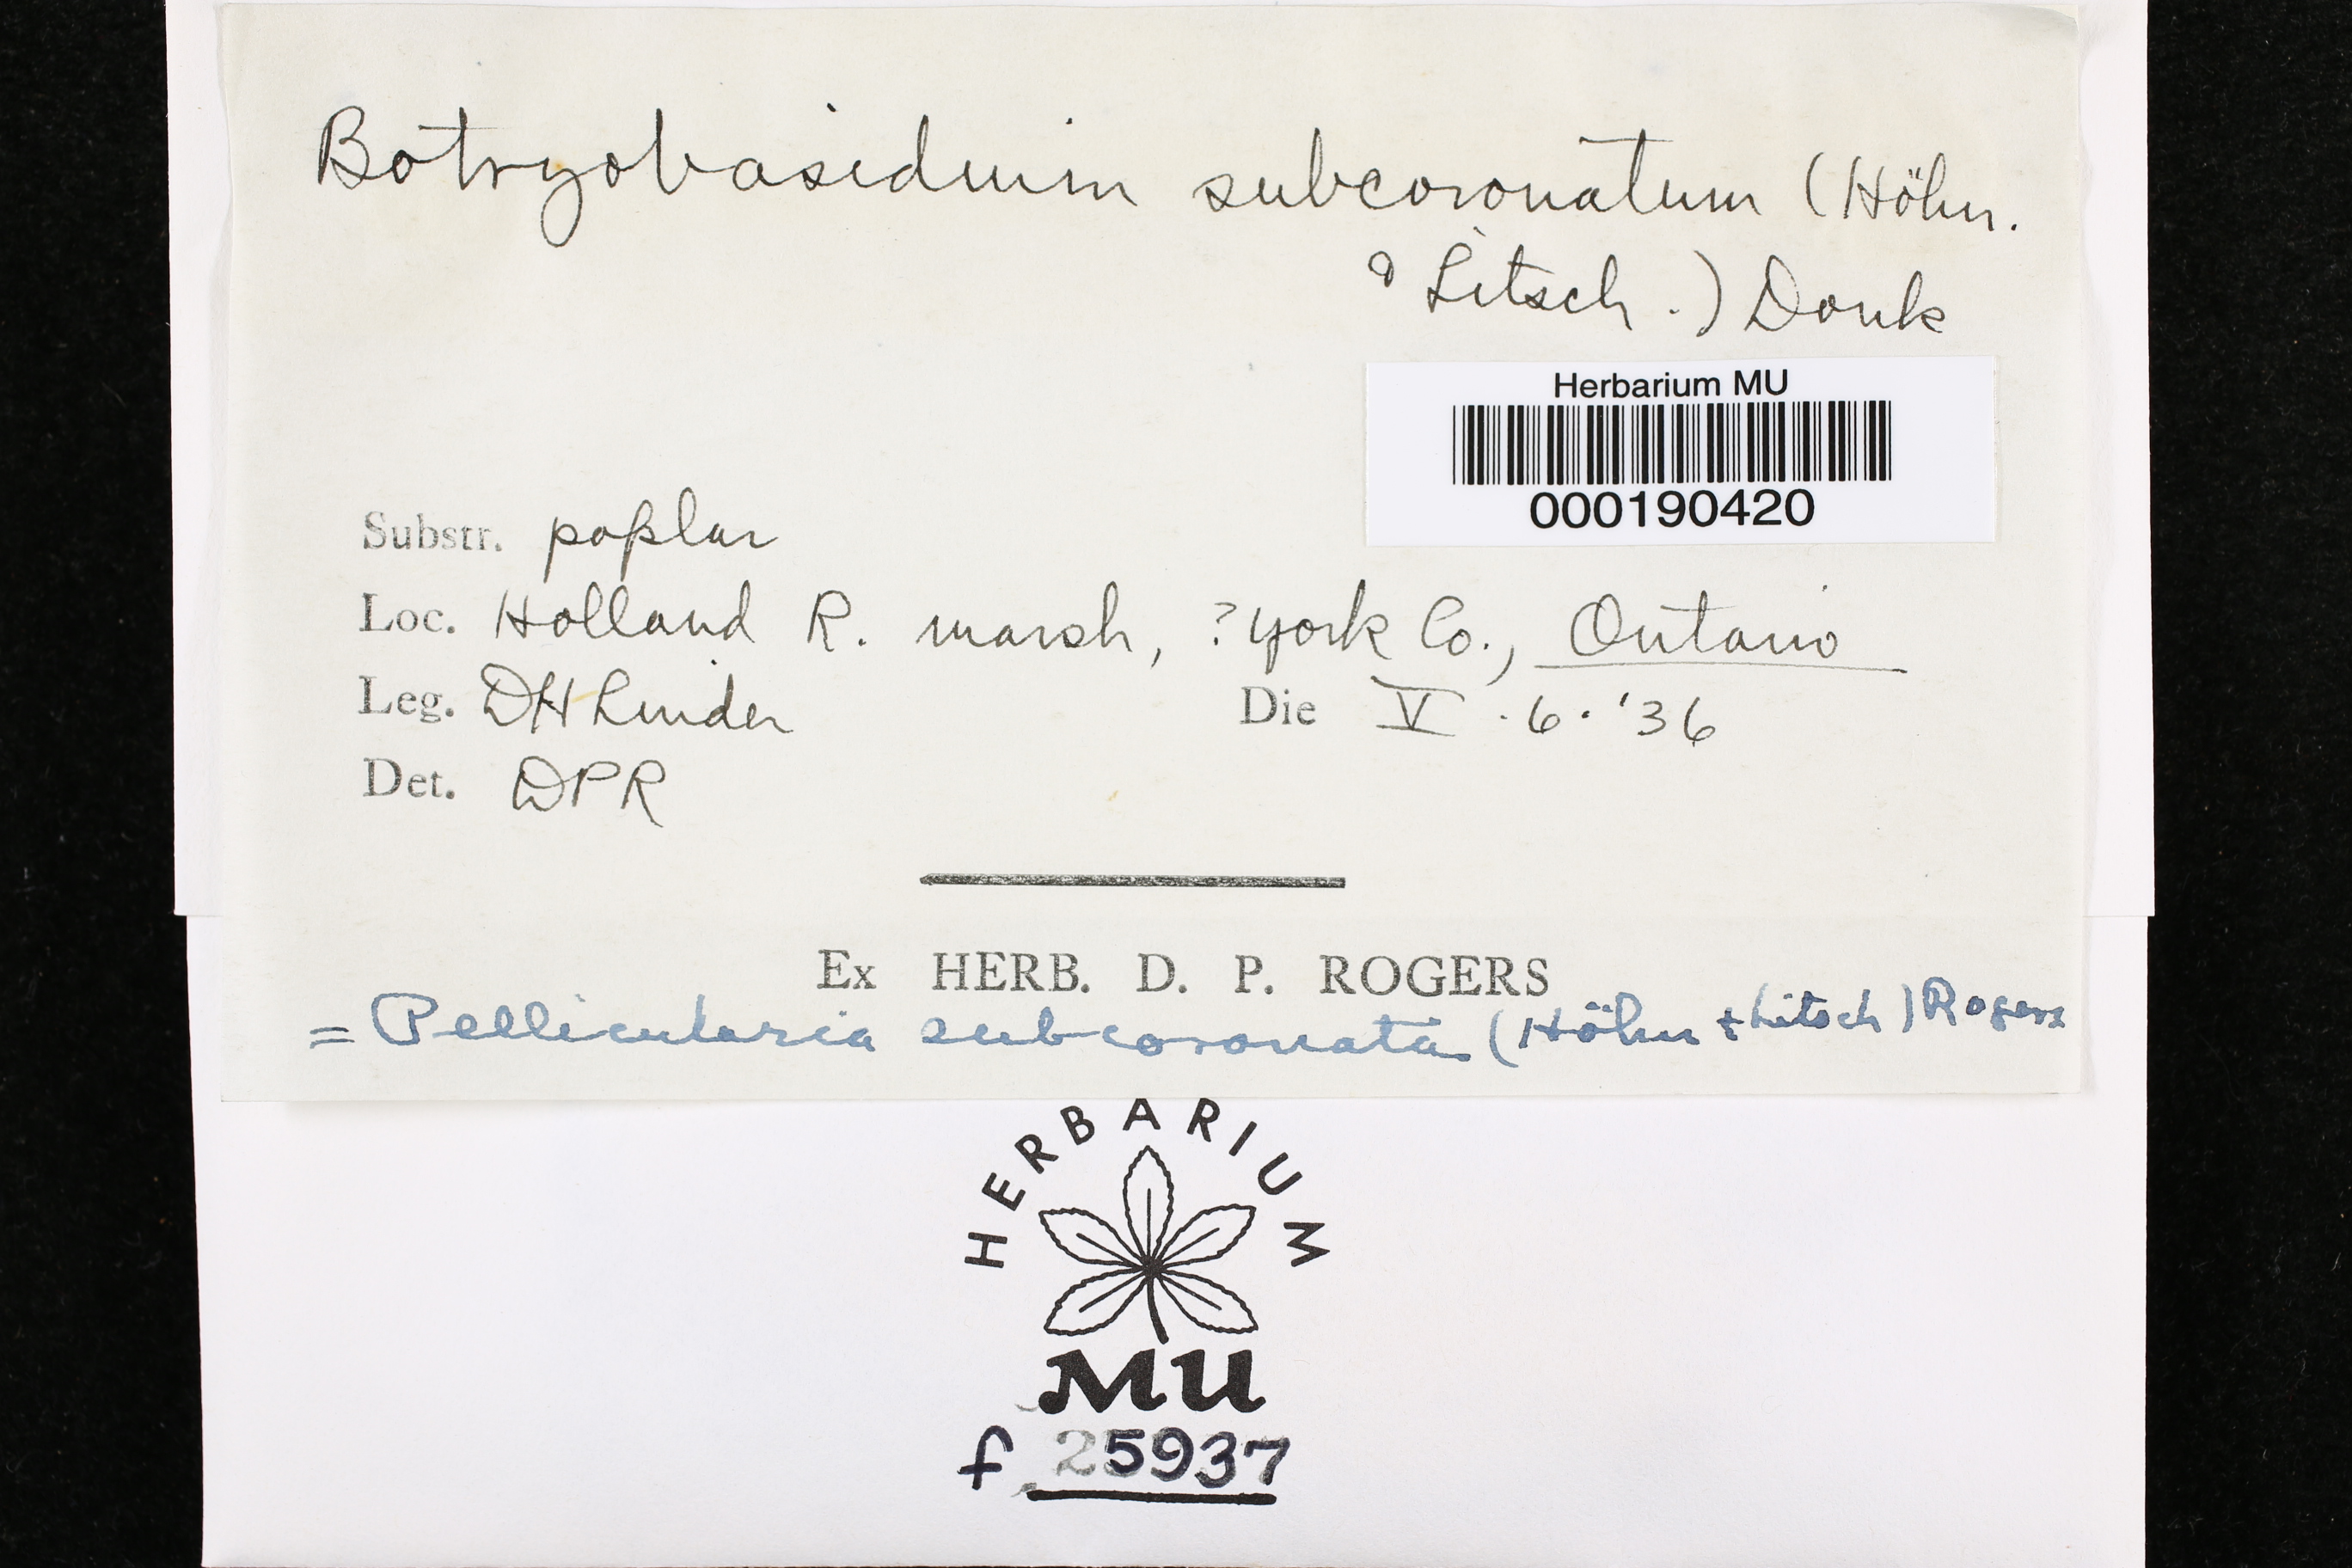 Botryobasidium subcoronatum (Höhn.
& Litsch.) Donk
Herbarium MU
000190420
Substr. poplar
Loc. Holland R. marsh, ? York Co., Ontario
Leg. DH Linder Die V. 6. '36
Det. DPR
Ex HERB. D. P. ROGERS
= Pellicularia subcoronata (Höhn & Litsch) Rogers
HERBARIUM
MU
f 25937